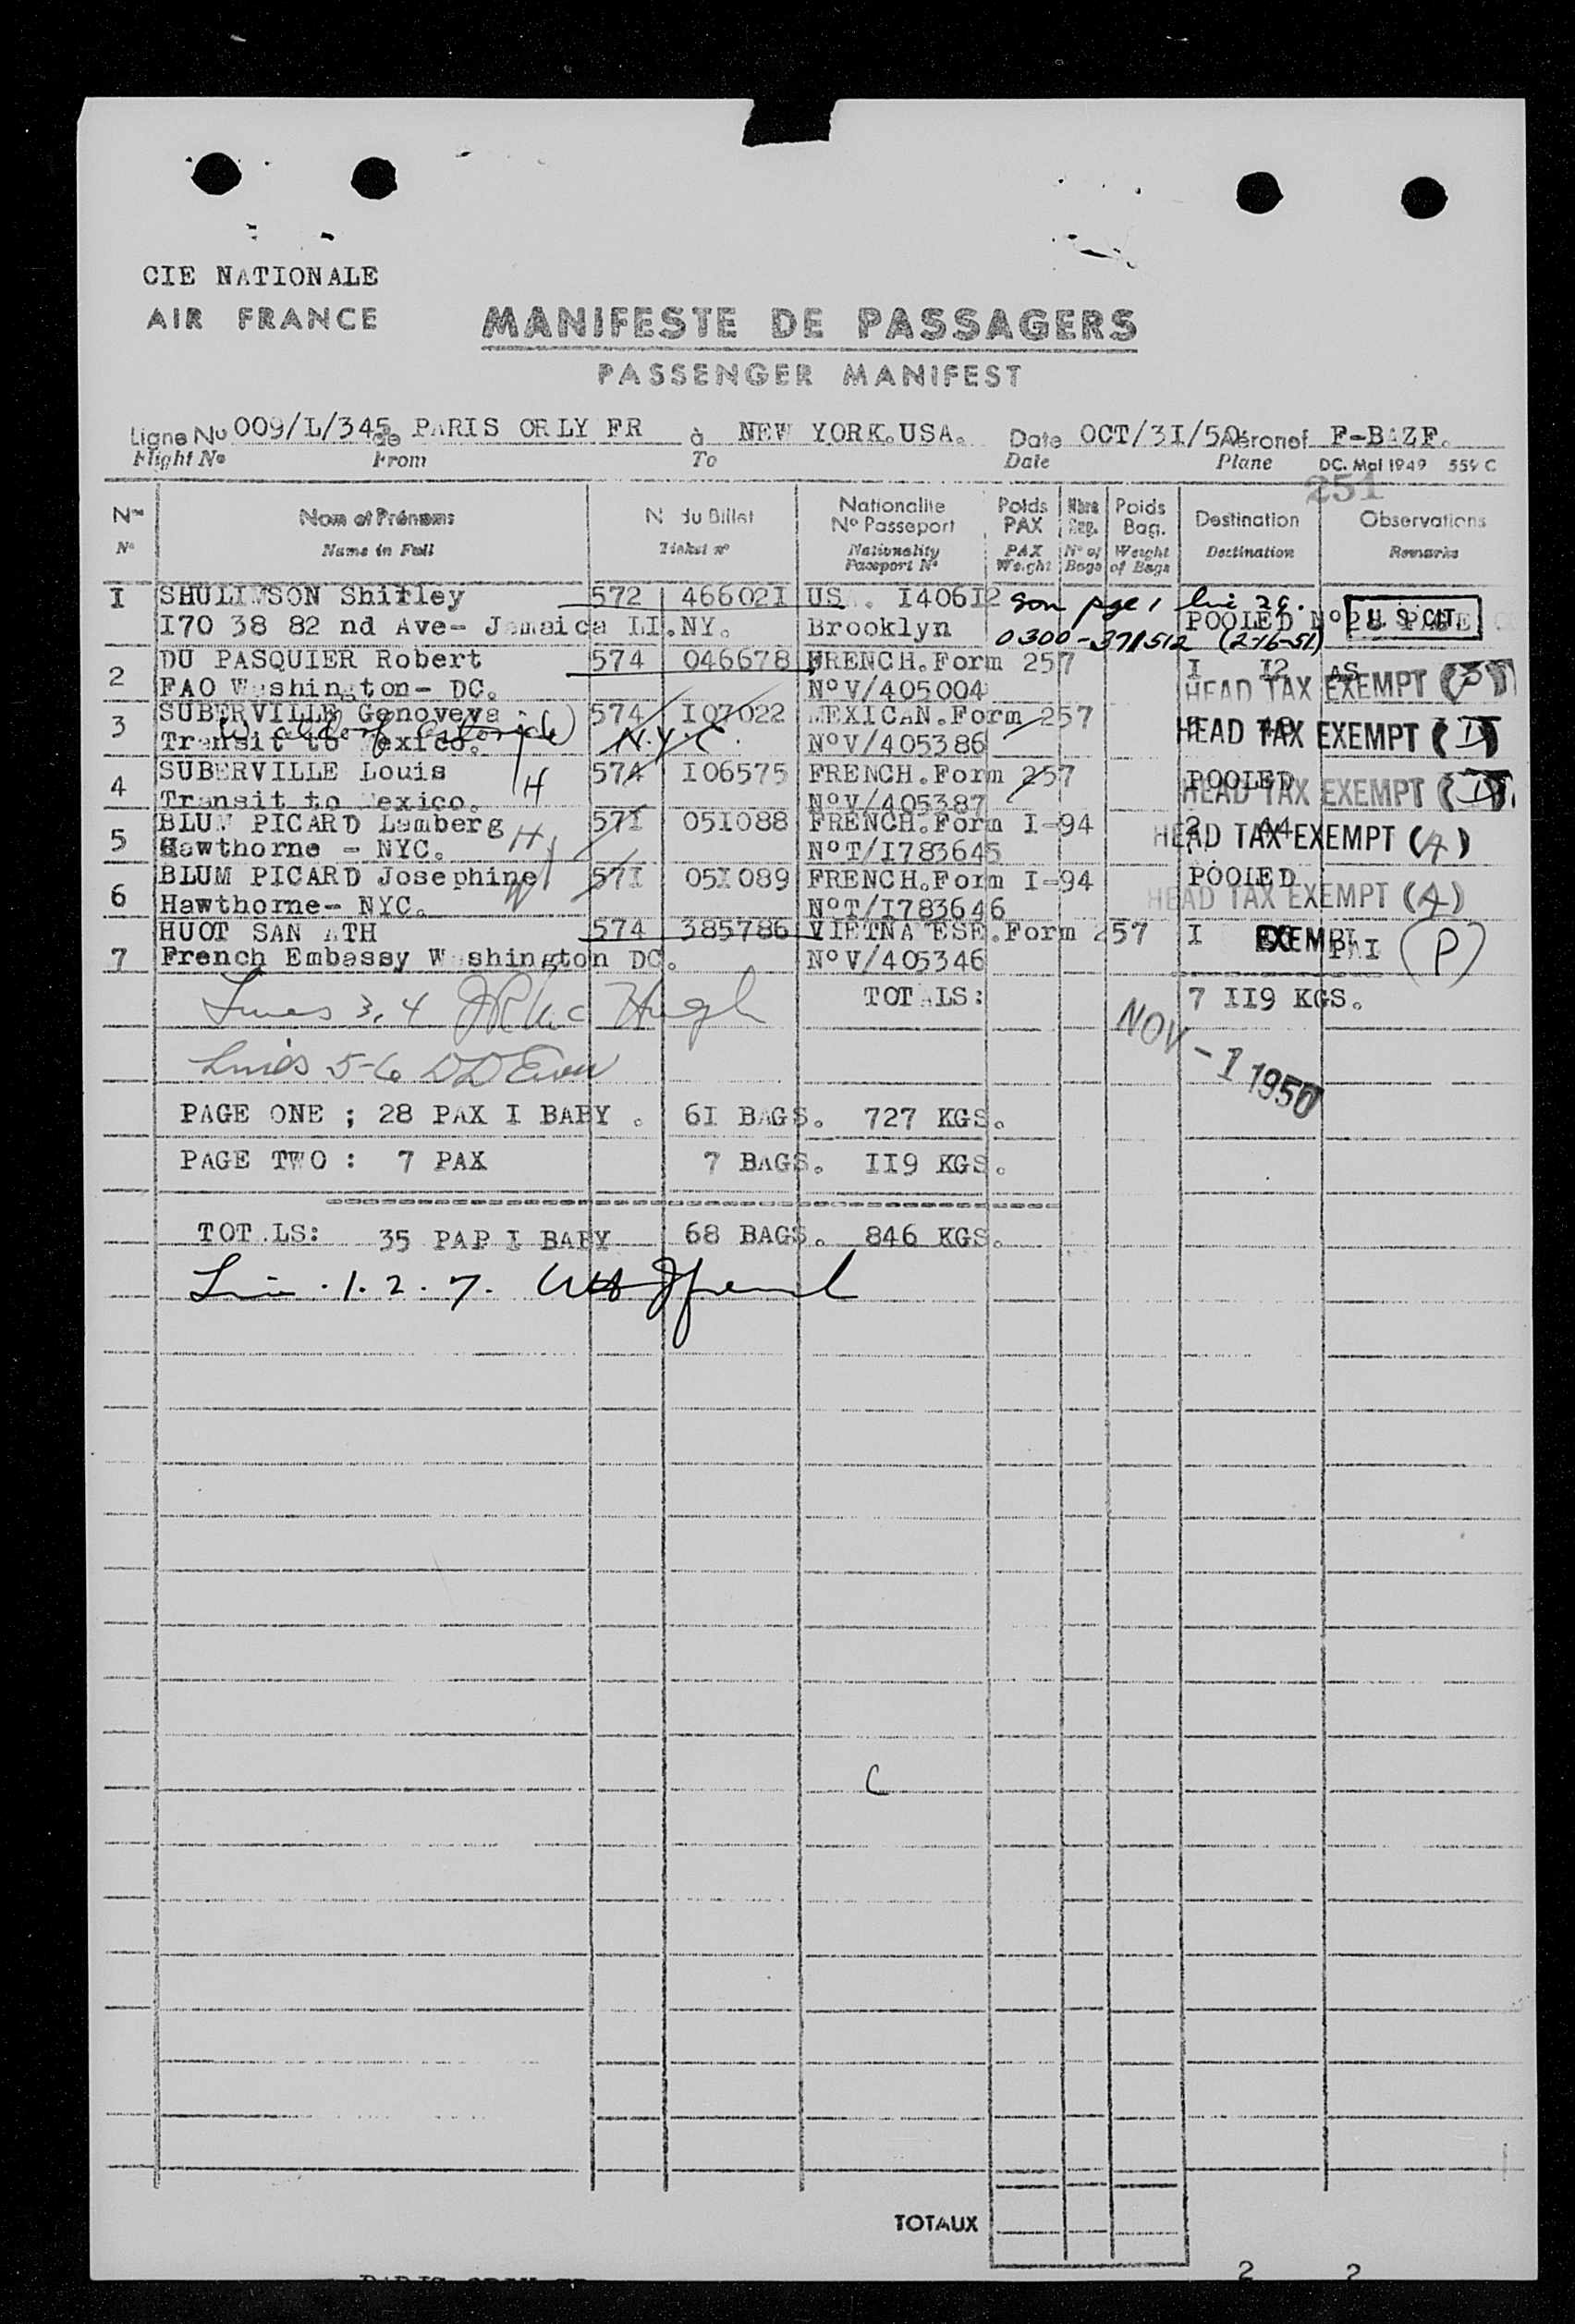 CIE NATIONALE
AIR FRANCE
MANIFESTE DE PASSAGERS
PASSENGER MANIFEST
Ligne No 009/L/345 de PARIS ORLY FR à NEW YORK.USA. Date OCT/3I/50 Aéronef F-BAZF.
Flight No From To Date Plane DC. Mai 1949 559 C
251
Nom et Prénoms N du Billet Nationalite No Passeport Poids PAX Nbre Bag. Poids Bag. Destination Observations
No Name in Full Ticket no Nationality Passport No PAX Weight No of Bags Weight of Bags Destination Remarks
I SHULIMSON Shirley 572 46602I US . I406I2 son page 1 line 28.
I70 38 82 nd Ave- Jamaica LI.NY. Brooklyn POOLED No28 PAGE U.S.CIT.
0300-371512 (2-16-51)
2 DU PASQUIER Robert 574 046678 FRENCH.Form 257 I I2 AS
FAO Washington- DC. NoV/405004 HEAD TAX EXEMPT (P)
3 SUBERVILLE Genoveva 574 I07022 MEXICAN.Form 257
Transit to Mexico. N.Y.C. NoV/405386 HEAD TAX EXEMPT
4 SUBERVILLE Louis H 574 I06575 FRENCH.Form 257 POOLED
Transit to Mexico. NoV/405387 HEAD TAX EXEMPT
5 BLUM PICARD Lamberg H 57I 05I088 FRENCH.Form I-94 2 44
Hawthorne - NYC. NoT/I783645 HEAD TAX EXEMPT (4)
6 BLUM PICARD Josephine W 57I 05I089 FRENCH.Form I-94 POOLED
Hawthorne- NYC. NoT/I783646 HEAD TAX EXEMPT (4)
7 HUOT SAN ATH 574 385786 VIETNAMESE.Form 257 I EXEMPT (P)
French Embassy Washington DC. NoV/405346
Lines 3, 4 TOTALS: 7 II9 KGS.
NOV -1 1950
Lines 5-6
PAGE ONE ; 28 PAX I BABY . 6I BAGS. 727 KGS.
PAGE TWO : 7 PAX 7 BAGS. II9 KGS.
TOT LS: 35 PAP I BABY 68 BAGS. 846 KGS.
Line .1.2.7.
C
TOTAUX
2 2